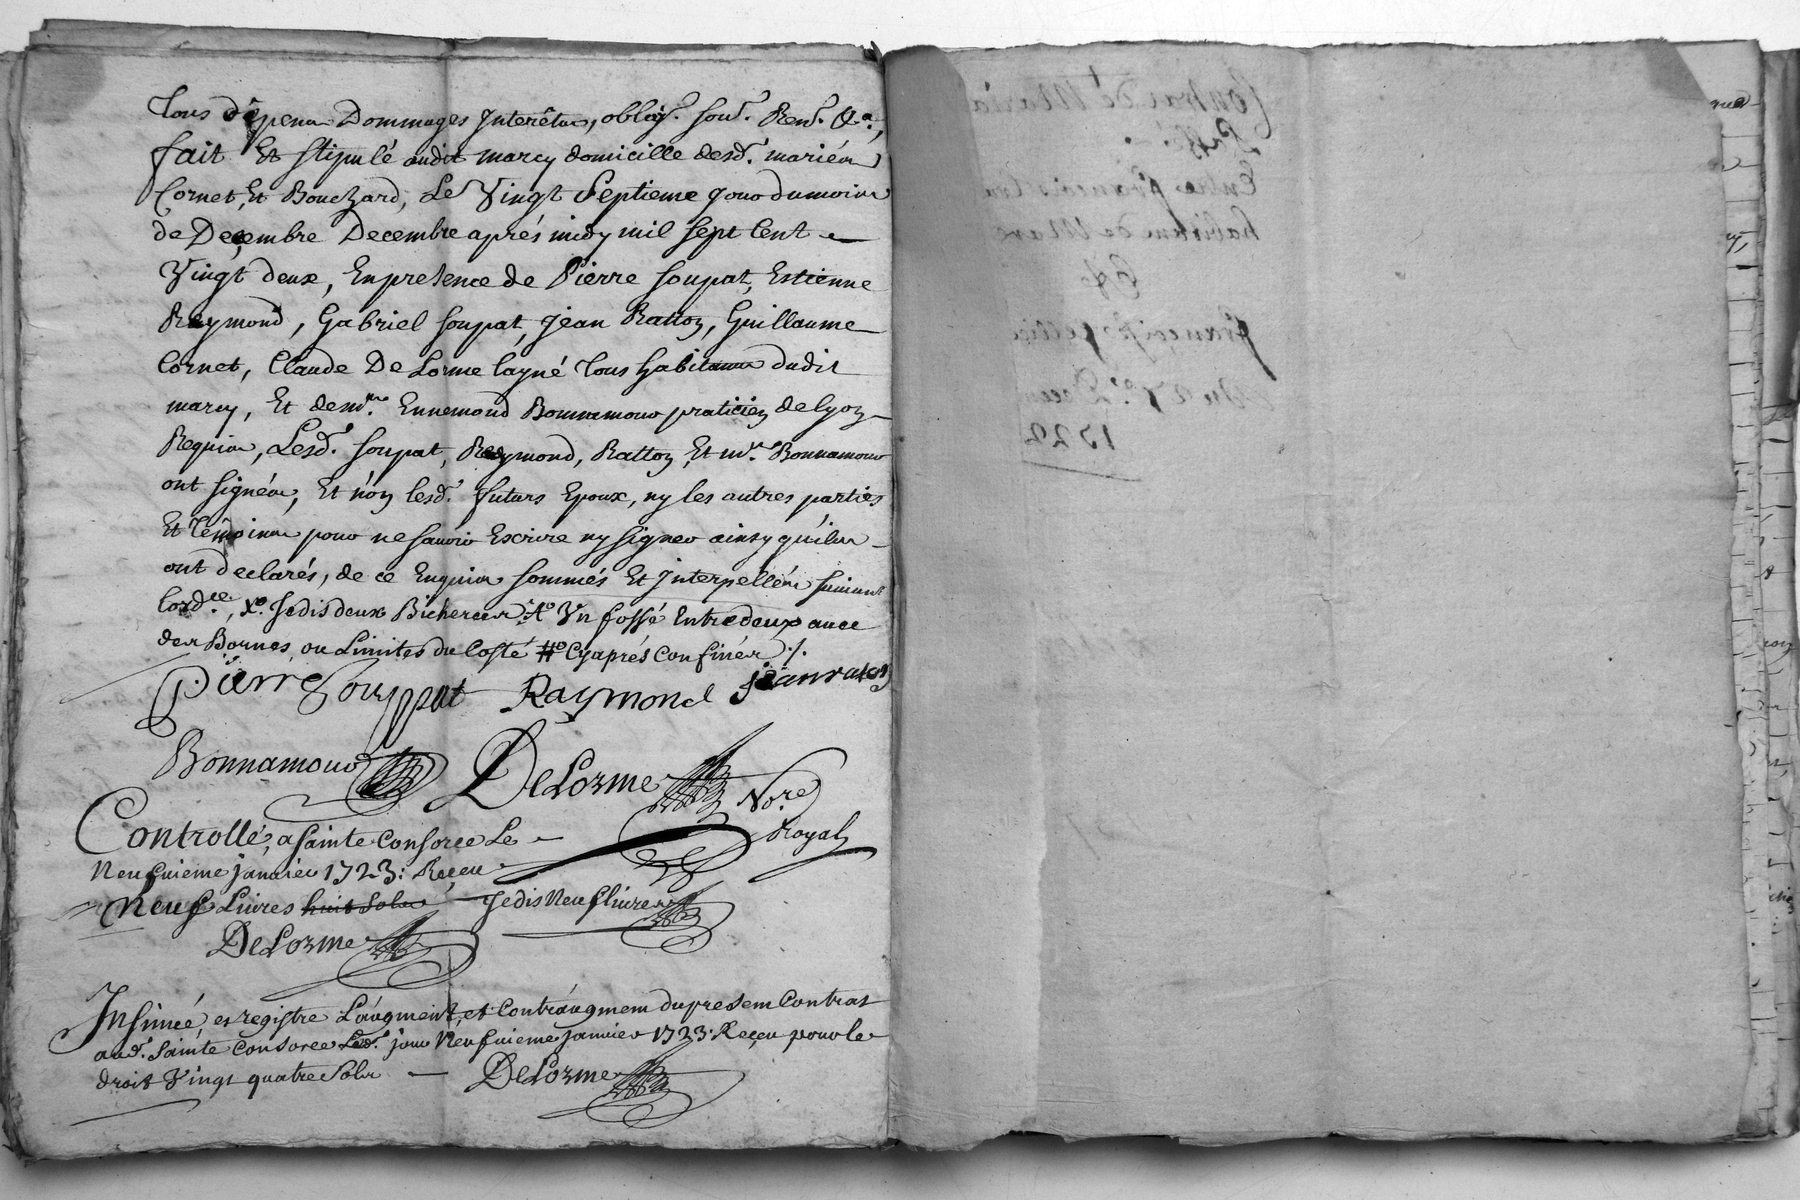 Tous dépens Dommages Interêts, oblig.^ Sou.^ Ren.^ &a,
fait Et stipulé audit marcy domicille desd. mariés
Cornet, Et Bouchard, Le Vingt Septieme jour du mois
de Decembre Decembre aprés midy mil sept Cent
Vingt deux, En presence de Pierre Soupat, Estienne
Raymond, Gabriel Soupat, Jean Ratton, Guillaume
Cornet, Claude De Lorme Layné Tous habitans dudit
marcy, Et de m.re Ennemond Bonnamour praticien de Lyon
Requis, Lesd. Soupat, Raymond, Ratton, Et m.r Bonnamour
ont signés, Et nón lesd. futurs Epoux, ny les autres parties
Et Témoins pour ne sauoir Escrire ny signer ainsy qu'ils
ont declarés, de ce Enquis sommés Et Interpellés suiuant
lord.ce, Xo. Je dis deux Bicherees, Ao Vn fossé Entredeux auec
des Bornes ou Limites du Costé #o Cyaprés Confinés ./.
Pierre Souppat Raymond jean raton
Bonnamour DeLorme No.re
Royal
Controllé, a Sainte Consorce Le
Neufuieme januier 1723: Reçeu
Neuf Liures huit Sols Je dis Neuf liures
DeLorme
Insinüé, es registre L'áugment, et Contráugment du present Contrat
aud. Sainte Consorce Led. jour Neufuieme januier 1723: Reçeu pour le
droit Vingt quatre Sols — DeLorme